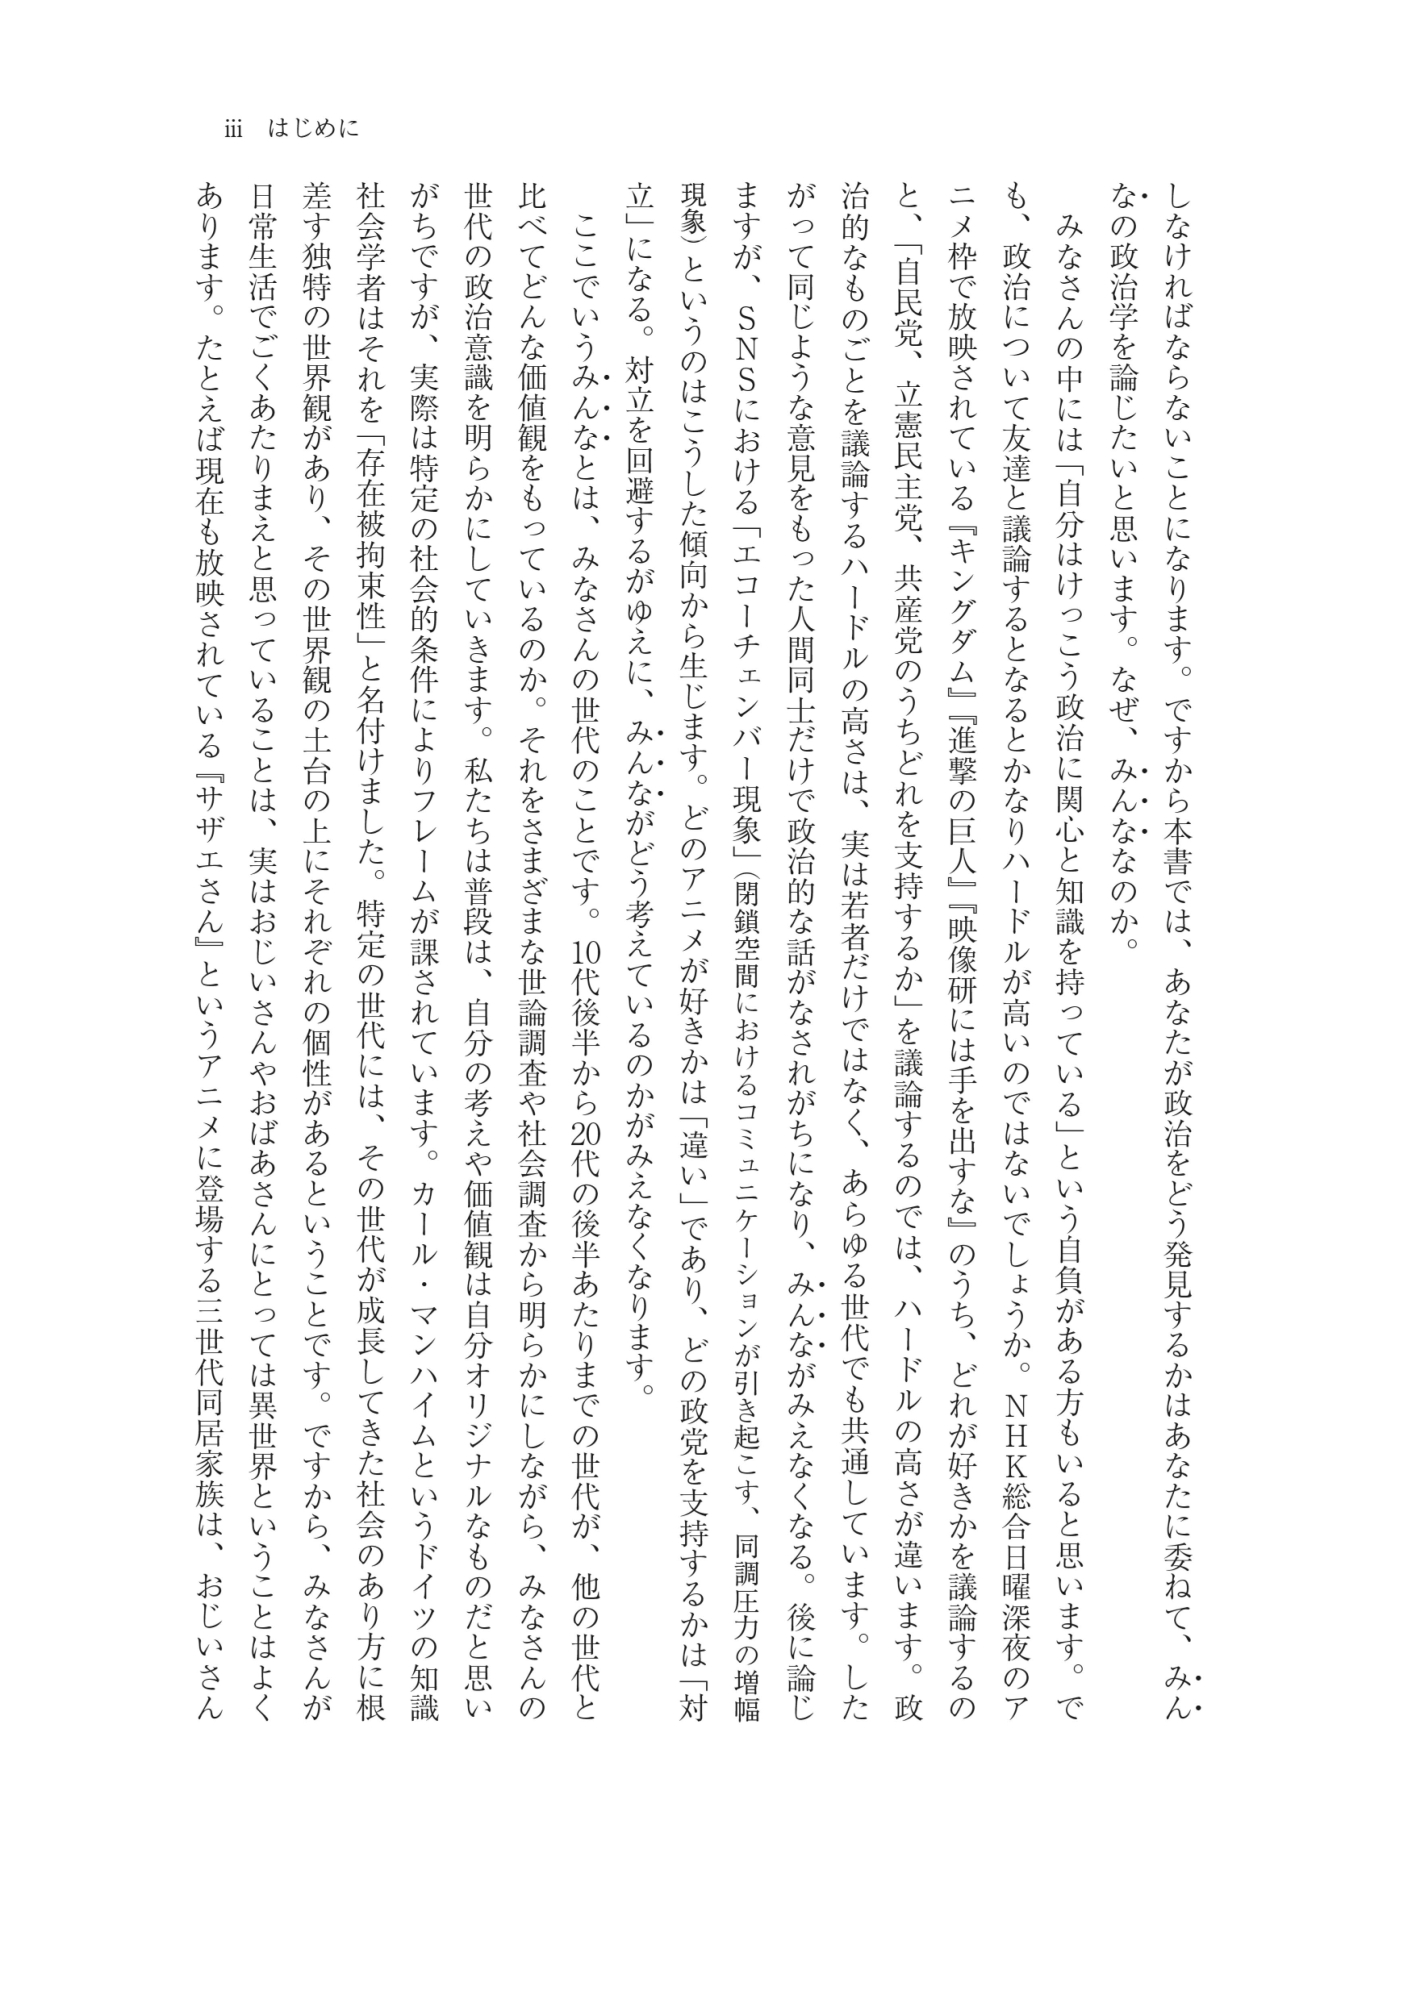 iii　はじめに
しなければならないことになります。ですから本書では、あなたが政治をどう発見するかはあなたに委ねて、みん
なの政治学を論じたいと思います。なぜ、みんななのか。
　みなさんの中には「自分はけっこう政治に関心と知識を持っている」という自負がある方もいると思います。で
も、政治について友達と議論するとなるとかなりハードルが高いのではないでしょうか。ＮＨＫ総合日曜深夜のア
ニメ枠で放映されている『キングダム』『進撃の巨人』『映像研には手を出すな』のうち、どれが好きかを議論するの
と、「自民党、立憲民主党、共産党のうちどれを支持するか」を議論するのでは、ハードルの高さが違います。政
治的なものごとを議論するハードルの高さは、実は若者だけではなく、あらゆる世代でも共通しています。した
がって同じような意見をもった人間同士だけで政治的な話がなされがちになり、みんながみえなくなる。後に論じ
ますが、ＳＮＳにおける「エコーチェンバー現象」（閉鎖空間におけるコミュニケーションが引き起こす、同調圧力の増幅
現象）というのはこうした傾向から生じます。どのアニメが好きかは「違い」であり、どの政党を支持するかは「対
立」になる。対立を回避するがゆえに、みんながどう考えているのかがみえなくなります。
　ここでいうみんなとは、みなさんの世代のことです。10代後半から20代の後半あたりまでの世代が、他の世代と
比べてどんな価値観をもっているのか。それをさまざまな世論調査や社会調査から明らかにしながら、みなさんの
世代の政治意識を明らかにしていきます。私たちは普段は、自分の考えや価値観は自分オリジナルなものだと思い
がちですが、実際は特定の社会的条件によりフレームが課されています。カール・マンハイムというドイツの知識
社会学者はそれを「存在被拘束性」と名付けました。特定の世代には、その世代が成長してきた社会のあり方に根
差す独特の世界観があり、その世界観の土台の上にそれぞれの個性があるということです。ですから、みなさんが
日常生活でごくあたりまえと思っていることは、実はおじいさんやおばあさんにとっては異世界ということはよく
あります。たとえば現在も放映されている『サザエさん』というアニメに登場する三世代同居家族は、おじいさん